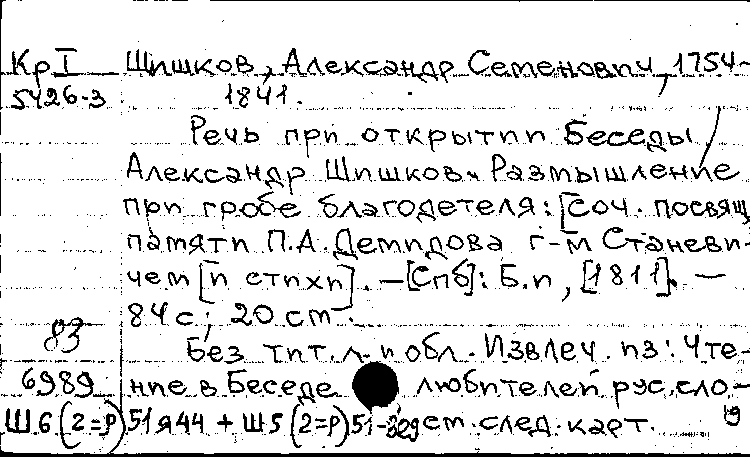 Кр I Шишков, Александр Семенович, 1754-
5426-3 1841.
Речь при открытии Беседы /
Александр Шишков. Размышление
при гробе благодетеля: [соч. посвящ
памяти П.А. Демидова г-м Станеви-
чем [и стихи]. — [Спб]: Б.и, [1811]. —
84 с; 20 cm.
83 Без тит. л. и обл. Извлеч. из: Чте-
6989 ние в Беседе любителей рус. сло-
Ш6(2=Р)51я44 + Ш5(2=Р)51-329 см. след. карт.